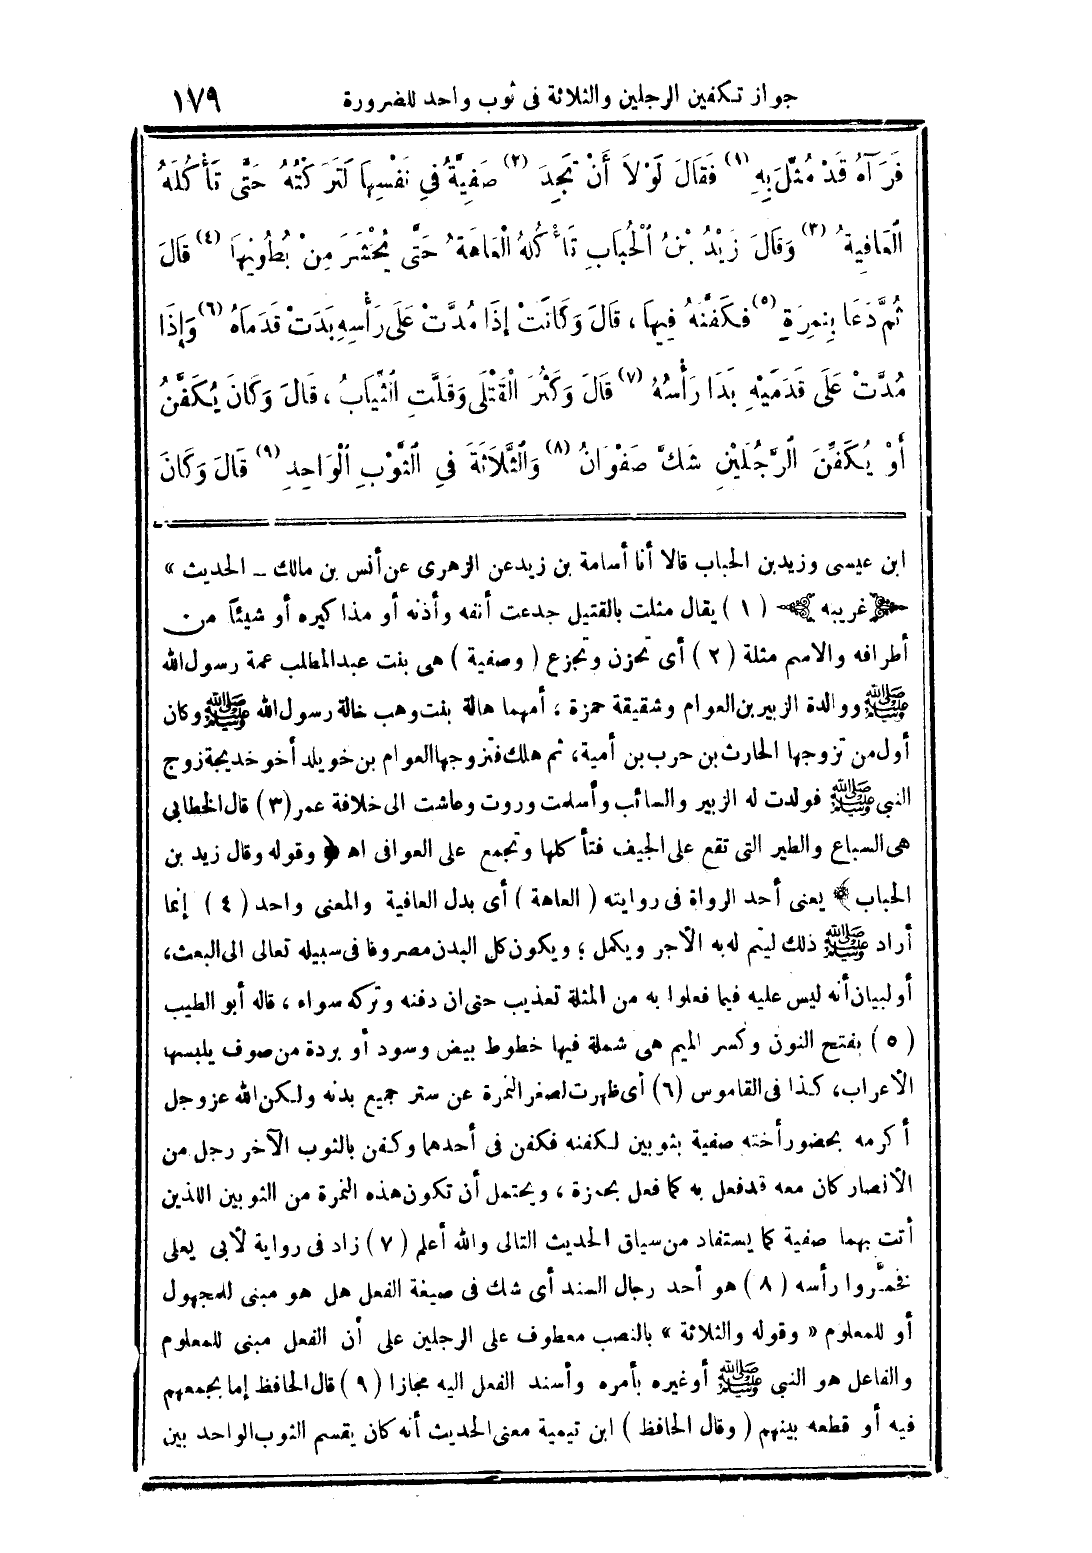 جواز تكفين الرجلين والثلاثة فى ثوب واحد للضرورة ١٧٩
فَرَآهُ قَدْ مُثِّلَ بِهِ (١) فَقَالَ لَوْلاَ أَنْ تَجِدَ (٢) صَفِيَّةُ فِي نَفْسِهَا لَتَرَكْتُهُ حَتَّى تَأْكُلَهُ
الْعَافِيَةُ (٣) وَقَالَ زَيْدُ بْنُ الْحُبَابِ تَأْكُلُهُ الْعَاهَةُ حَتَّى يُحْشَرَ مِنْ بُطُونِهَا (٤) قَالَ
ثُمَّ دَعَا بِنَمِرَةٍ (٥) فَكَفَّنَهُ فِيهَا، قَالَ وَكَانَتْ إِذَا مُدَّتْ عَلَى رَأْسِهِ بَدَتْ قَدَمَاهُ (٦) وَإِذَا
مُدَّتْ عَلَى قَدَمَيْهِ بَدَا رَأْسُهُ (٧) قَالَ وَكَثُرَ الْقَتْلَى وَقَلَّتِ الثِّيَابُ، قَالَ وَكَانَ يُكَفَّنُ
أَوْ يُكَفِّنُ الرَّجُلَيْنِ شَكَّ صَفْوَانُ (٨) وَالثَّلاَثَةَ فِي الثَّوْبِ الْوَاحِدِ (٩) قَالَ وَكَانَ
ابن عيسى وزيد بن الحباب قالا أنا أسامة بن زيد عن الزهرى عن أنس بن مالك ــ الحديث »
﴿غريبه﴾ (١) يقال مثلت بالقتيل جدعت أنفه وأذنه أو مذاكيره أو شيئاً من
أطرافه والاسم مثلة (٢) أى تحزن وتجزع (وصفية) هى بنت عبدالمطلب عمة رسول الله
ﷺ ووالدة الزبير بن العوام وشقيقة حمزة، أمهما هالة بنت وهب خالة رسول الله ﷺ وكان
أول من تزوجها الحارث بن حرب بن أمية، ثم هلك فتزوجها العوام بن خويلد أخو خديجة زوج
النبي ﷺ فولدت له الزبير والسائب وأسلمت وروت وعاشت الى خلافة عمر (٣) قال الخطابي
هى السباع والطير التى تقع على الجيف فتأكلها وتجمع على العوافى اهـ ﴿وقوله وقال زيد بن
الحباب﴾ يعنى أحد الرواة فى روايته (العاهة) أى بدل العافية والمعنى واحد (٤) إنما
أراد ﷺ ذلك ليتم له به الأجر ويكمل؛ ويكون كل البدن مصروفا فى سبيله تعالى الى البعث،
أو لبيان أنه ليس عليه فيما فعلوا به من المثلة تعذيب حتى ان دفنه وتركه سواء، قاله أبو الطيب
(٥) بفتح النون وكسر الميم هى شملة فيها خطوط بيض وسود أو بردة من صوف يلبسها
الأعراب، كذا فى القاموس (٦) أى ظهرت لصغر النمرة عن ستر جميع بدنه ولكن الله عز وجل
أكرمه بحضور أخته صفية بثوبين لكفنه فكفن فى أحدهما وكفن بالثوب الآخر رجل من
الأنصار كان معه قد فعل به كما فعل بحمزة، ويحتمل أن تكون هذه النمرة من الثوبين اللذين
أتت بهما صفية كما يستفاد من سياق الحديث التالى والله أعلم (٧) زاد فى رواية لأبى يعلى
فخمَّروا رأسه (٨) هو أحد رجال السند أى شك فى صيغة الفعل هل هو مبنى للمجهول
أو للمعلوم « وقوله والثلاثة » بالنصب معطوف على الرجلين على أن الفعل مبنى للمعلوم
والفاعل هو النبي ﷺ أو غيره بأمره وأسند الفعل اليه مجازا (٩) قال الحافظ إما بجمعهم
فيه أو قطعه بينهم (وقال الحافظ) ابن تيمية معنى الحديث أنه كان يقسم الثوب الواحد بين